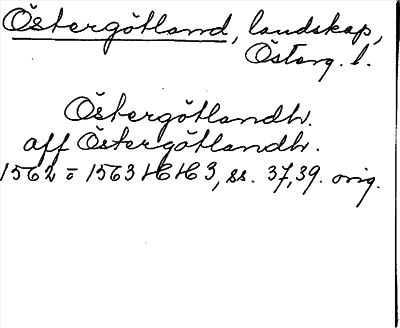 Östergötland, landskap,
Österg. l.
Östergötlandh.
aff Östergötlandh.
1562 = 1563 HH 3, ss. 37, 39. orig.